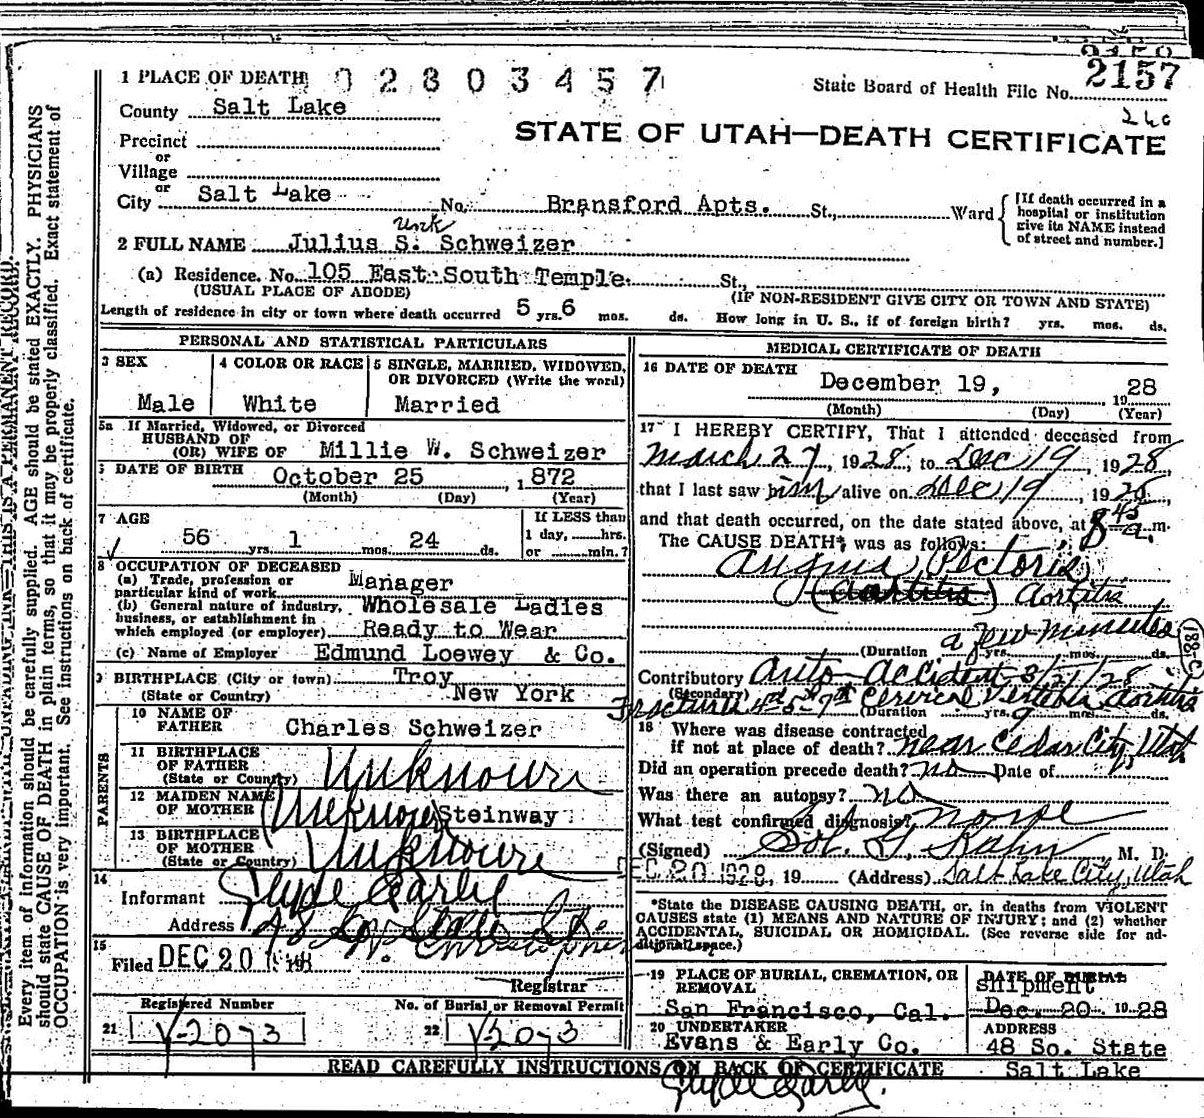 2157
1 PLACE OF DEATH 02803457
State Board of Health File No. 2157
County Salt Lake
STATE OF UTAH—DEATH CERTIFICATE
Precinct
or
Village
or
City Salt Lake No. Bransford Apts. St., Ward
[If death occurred in a hospital or institution give its NAME instead of street and number.]
unk
2 FULL NAME Julius S. Schweizer
(a) Residence. No. 105 East South Temple St.,
(USUAL PLACE OF ABODE) (IF NON-RESIDENT GIVE CITY OR TOWN AND STATE)
Length of residence in city or town where death occurred 5 yrs. 6 mos. ds. How long in U. S., if of foreign birth? yrs. mos. ds.
PERSONAL AND STATISTICAL PARTICULARS
3 SEX
Male
4 COLOR OR RACE
White
5 SINGLE, MARRIED, WIDOWED, OR DIVORCED (Write the word)
Married
5a If Married, Widowed, or Divorced
HUSBAND OF
(OR) WIFE OF Millie W. Schweizer
DATE OF BIRTH October 25, 1872
(Month) (Day) (Year)
7 AGE
56 yrs. 1 mos. 24 ds.
If LESS than
1 day, hrs.
or min.?
8 OCCUPATION OF DECEASED
(a) Trade, profession or
particular kind of work Manager
(b) General nature of industry,
business, or establishment in
which employed (or employer) Wholesale Ladies Ready to Wear
(c) Name of Employer Edmund Loewey & Co.
9 BIRTHPLACE (City or town) Troy
(State or Country) New York
PARENTS
10 NAME OF
FATHER Charles Schweizer
11 BIRTHPLACE
OF FATHER
(State or Country) Unknown
12 MAIDEN NAME
OF MOTHER Unknown Steinway
13 BIRTHPLACE
OF MOTHER
(State or Country) Unknown
14
Informant Clyde Early
Address 48 So. State
15
Filed DEC 20 1928
Registrar
Registered Number
21 V-2073
No. of Burial or Removal Permit
22 V-2073
MEDICAL CERTIFICATE OF DEATH
16 DATE OF DEATH
December 19, 1928
(Month) (Day) (Year)
17 I HEREBY CERTIFY, That I attended deceased from
March 27, 1928, to Dec 19 1928
that I last saw him alive on Dec 19, 1928
and that death occurred, on the date stated above, at 8 45 a.m.
The CAUSE DEATH* was as follows:
Angina Pectoris
(aortitis) Aortitis
a few minutes
(Duration yrs. mos. ds.
Contributory Auto Accident 3/27/28
(Secondary)
Fractures 4th 5th 7th Cervical Vertebra Aortitis
(Duration yrs. 9 mos. ds.
18 Where was disease contracted
if not at place of death? near Cedar City, Utah
Did an operation precede death? no Date of
Was there an autopsy? no
What test confirmed diagnosis? none
(Signed) Sol. G. Kahn M. D.
DEC 20 1928, 19 (Address) Salt Lake City, Utah
*State the DISEASE CAUSING DEATH, or, in deaths from VIOLENT
CAUSES state (1) MEANS AND NATURE OF INJURY; and (2) whether
ACCIDENTAL, SUICIDAL OR HOMICIDAL. (See reverse side for additional space.)
19 PLACE OF BURIAL, CREMATION, OR
REMOVAL
San Francisco, Cal.
DATE OF BURIAL
Shipment
Dec. 20 1928
20 UNDERTAKER
Evans & Early Co.
ADDRESS
48 So. State
Salt Lake
READ CAREFULLY INSTRUCTIONS ON BACK OF CERTIFICATE
Clyde Early.
Every item of information should be carefully supplied. AGE should be stated EXACTLY. PHYSICIANS
should state CAUSE OF DEATH in plain terms, so that it may be properly classified. Exact statement of
OCCUPATION is very important. See instructions on back of certificate.